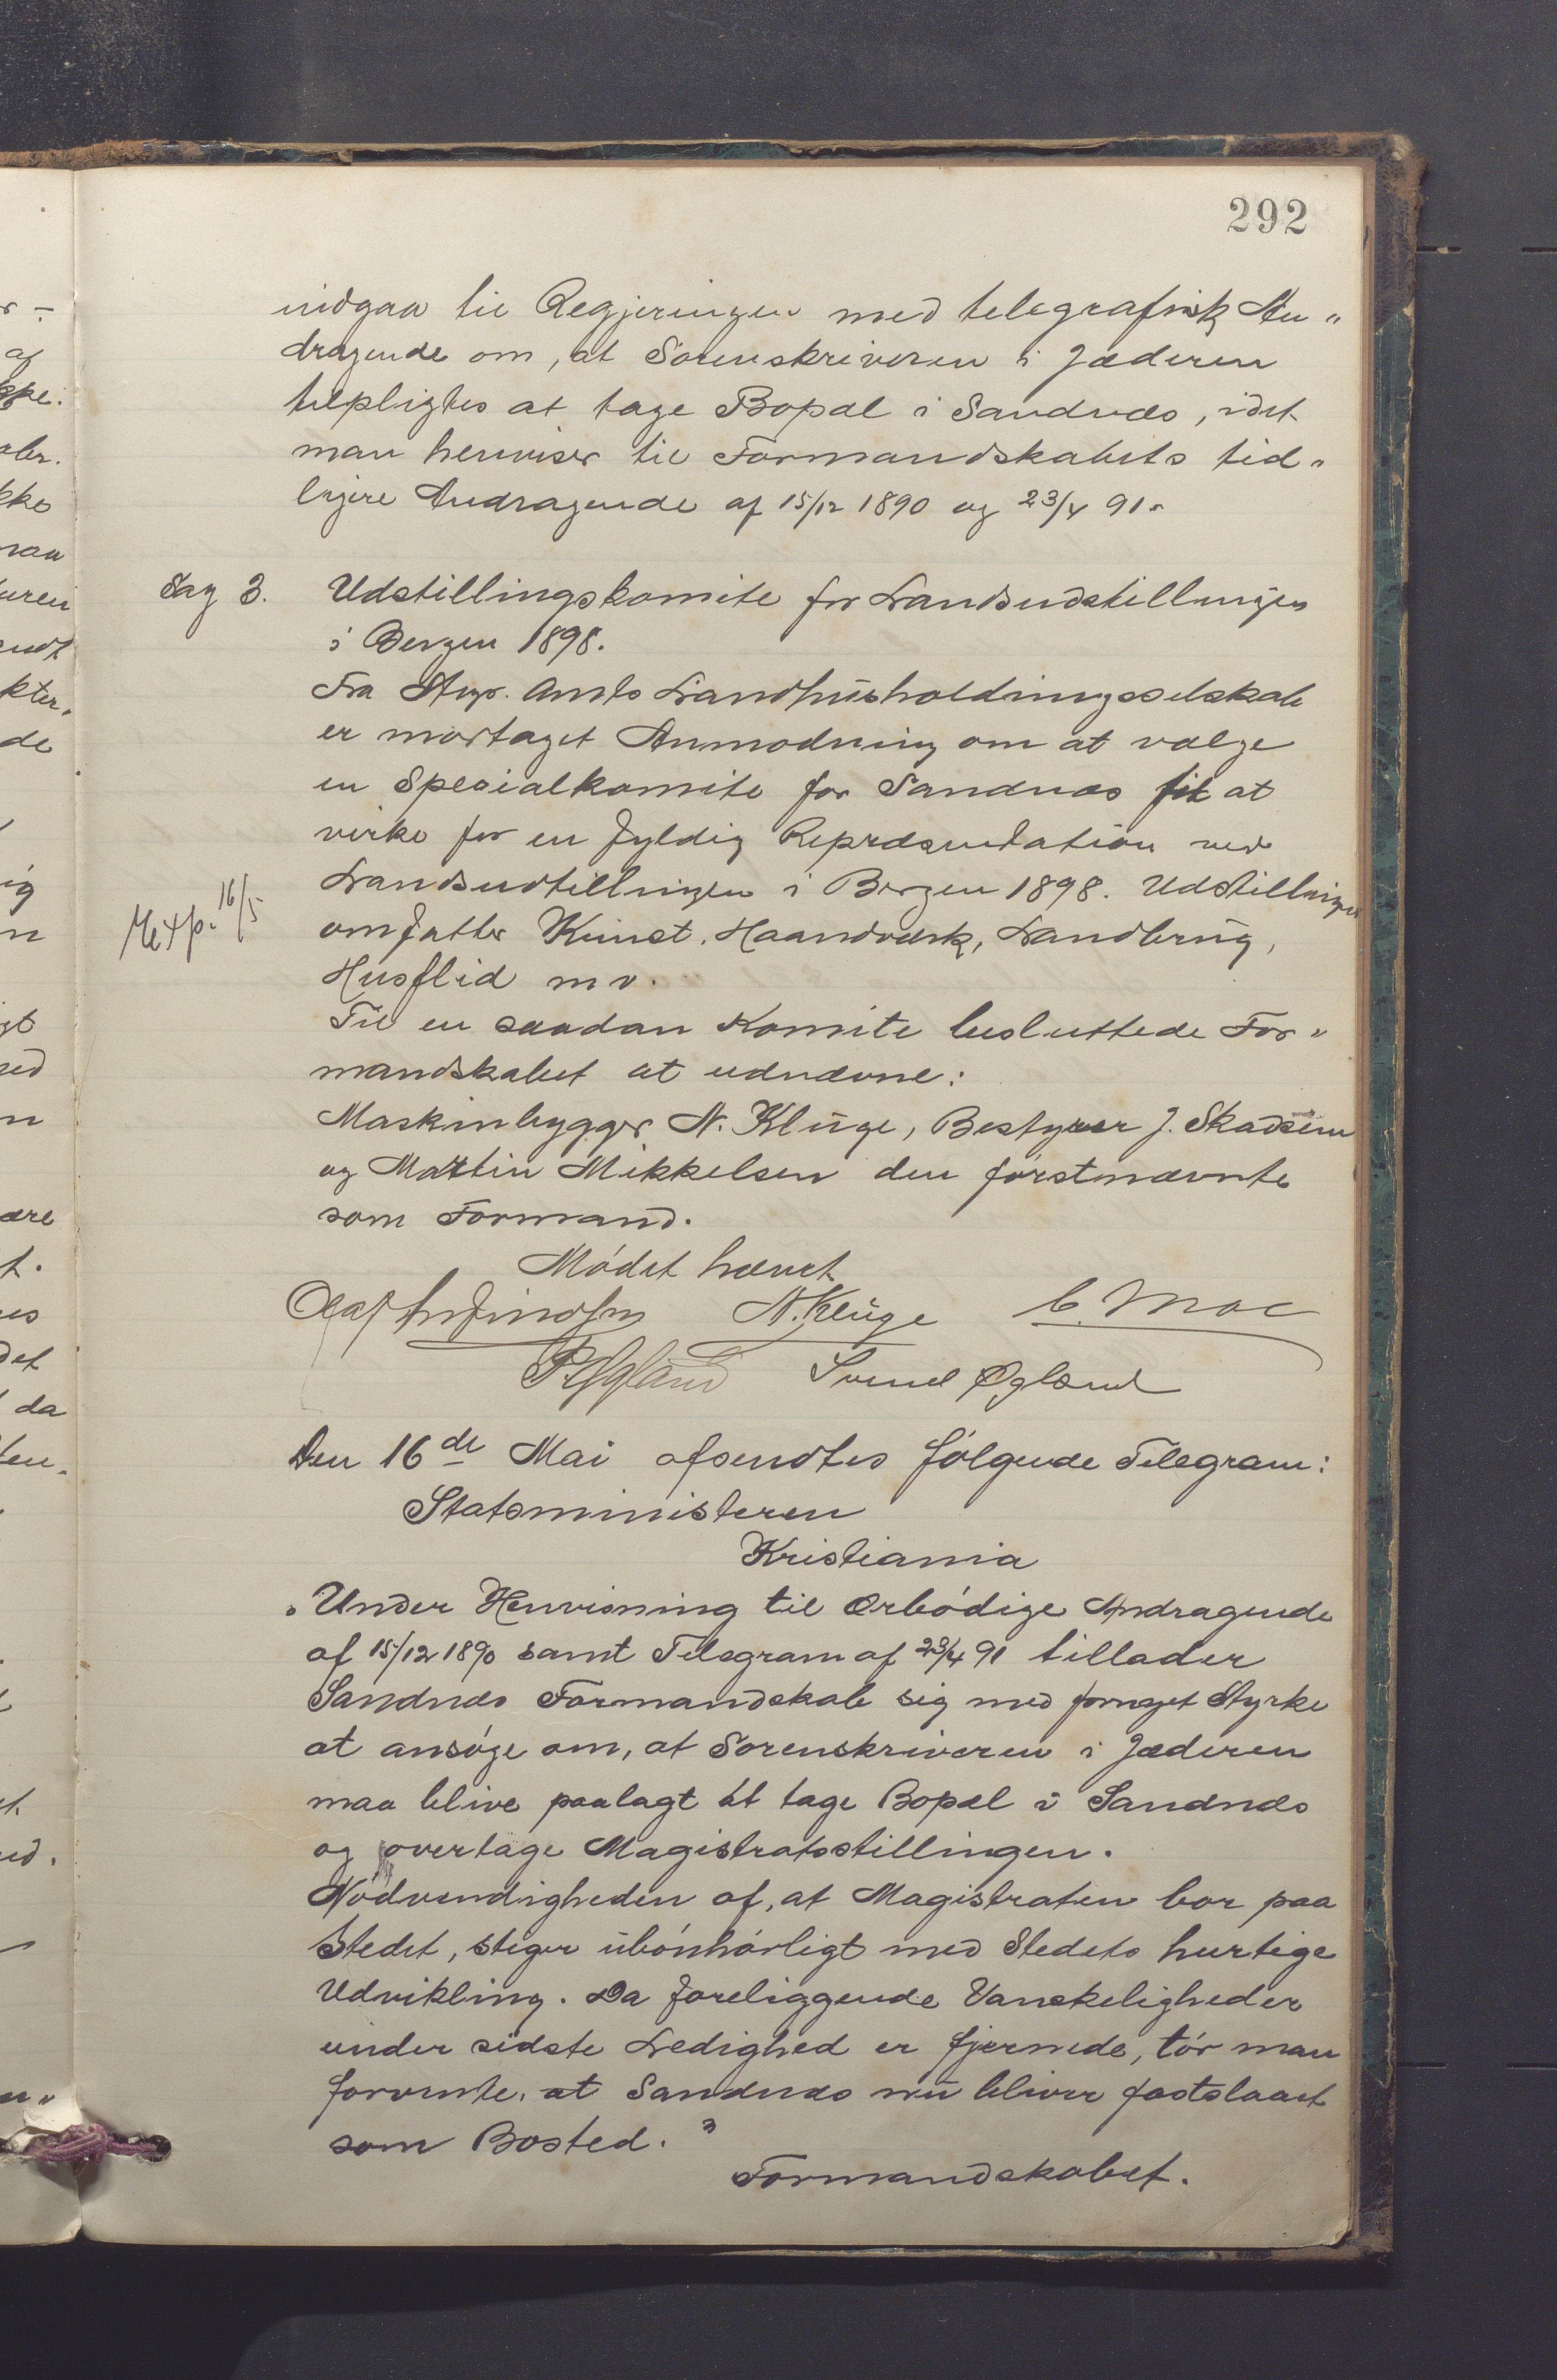 292
indgaa til Regjeringen med telegrafisk An„
dragende om, at Sorenskriveren i Jæderen
tilpligtes at tage Bopæl i Sandnæs, idet
man henviser til Formandskabets tid„
ligere Andragende af 15/12 1890 og 23/4 91.
Sag 3. Udstillingskomite for Landsudstillingen
i Bergen 1898.
Fra Stvgr. Amts Landhusholdningsselskab
er modtaget Anmodning om at vælge
en Specialkomite for Sandnæs til at
virke for en fyldig Repræsentation ved
Landsudtillingen i Bergen 1898. Udstillingen
16/5
omfatter Kunst, Haandværk, Landbrug,
Husflid mv.
Til en saadan Komite besluttede For„
mandskabet at udnævne:
Maskinbygger N. Kluge, Bestyrer J. Skadsem
og Martin Mikkelsen den førstnævnte
som Formand.
Mødet hævet
Olaf N. Kluge C. Moe
Svend Øgland
Den 16de Mai afsendtes følgende Telegram:
Statsministeren
Kristiania
„Under Henvisning til ærbødige Andragende
af 15/12 1890 samt Telegram af 23/4 91 tillader
Sandnæs Formandskab sig med fornyet Styrke
at ansøge om, at Sorenskriveren i Jæderen
maa blive paalagt at tage Bopæl i Sandnæs
og overtage Magistratsstillingen.
Nødvendigheden af, at Magistraten bor paa
Stedet, stiger ubønhørligt med Stedets hurtige
Udvikling. Da foreliggende Vanskeligheder
under sidste Ledighed er fjernede, tør man
forvente, at Sandnæs nu bliver fastslaaet
som Bosted."
Formandskabet.